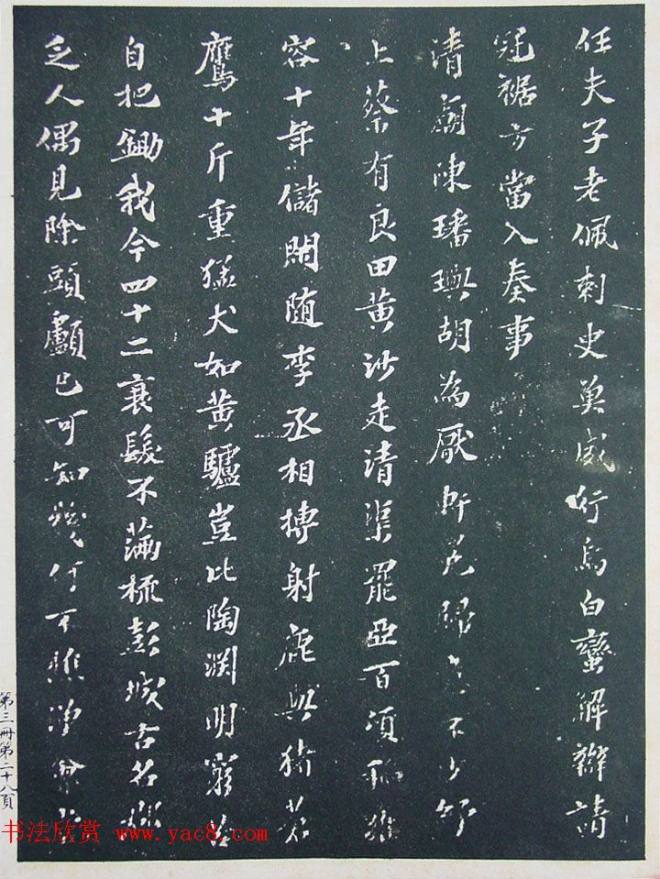 任夫子老佩刺史魚威行烏白蠻解辮請
冠裾方當入奏事
清廟陳璠璵胡為厭軒冕歸意不少紓
上蔡有良田黄沙走清渠罷亞百頃稻雍
容十年儲閑随李丞相搏射鹿與猪蒼
鷹十斤重猛犬如黄驢豈比陶淵明窮苦
自把鋤我今四十二衰髮不滿梳彭城古名郡
乏人偶見除頭顱已可知幾何不樵漁會當
第三册第二十八頁
书法欣赏 www.yac8.com